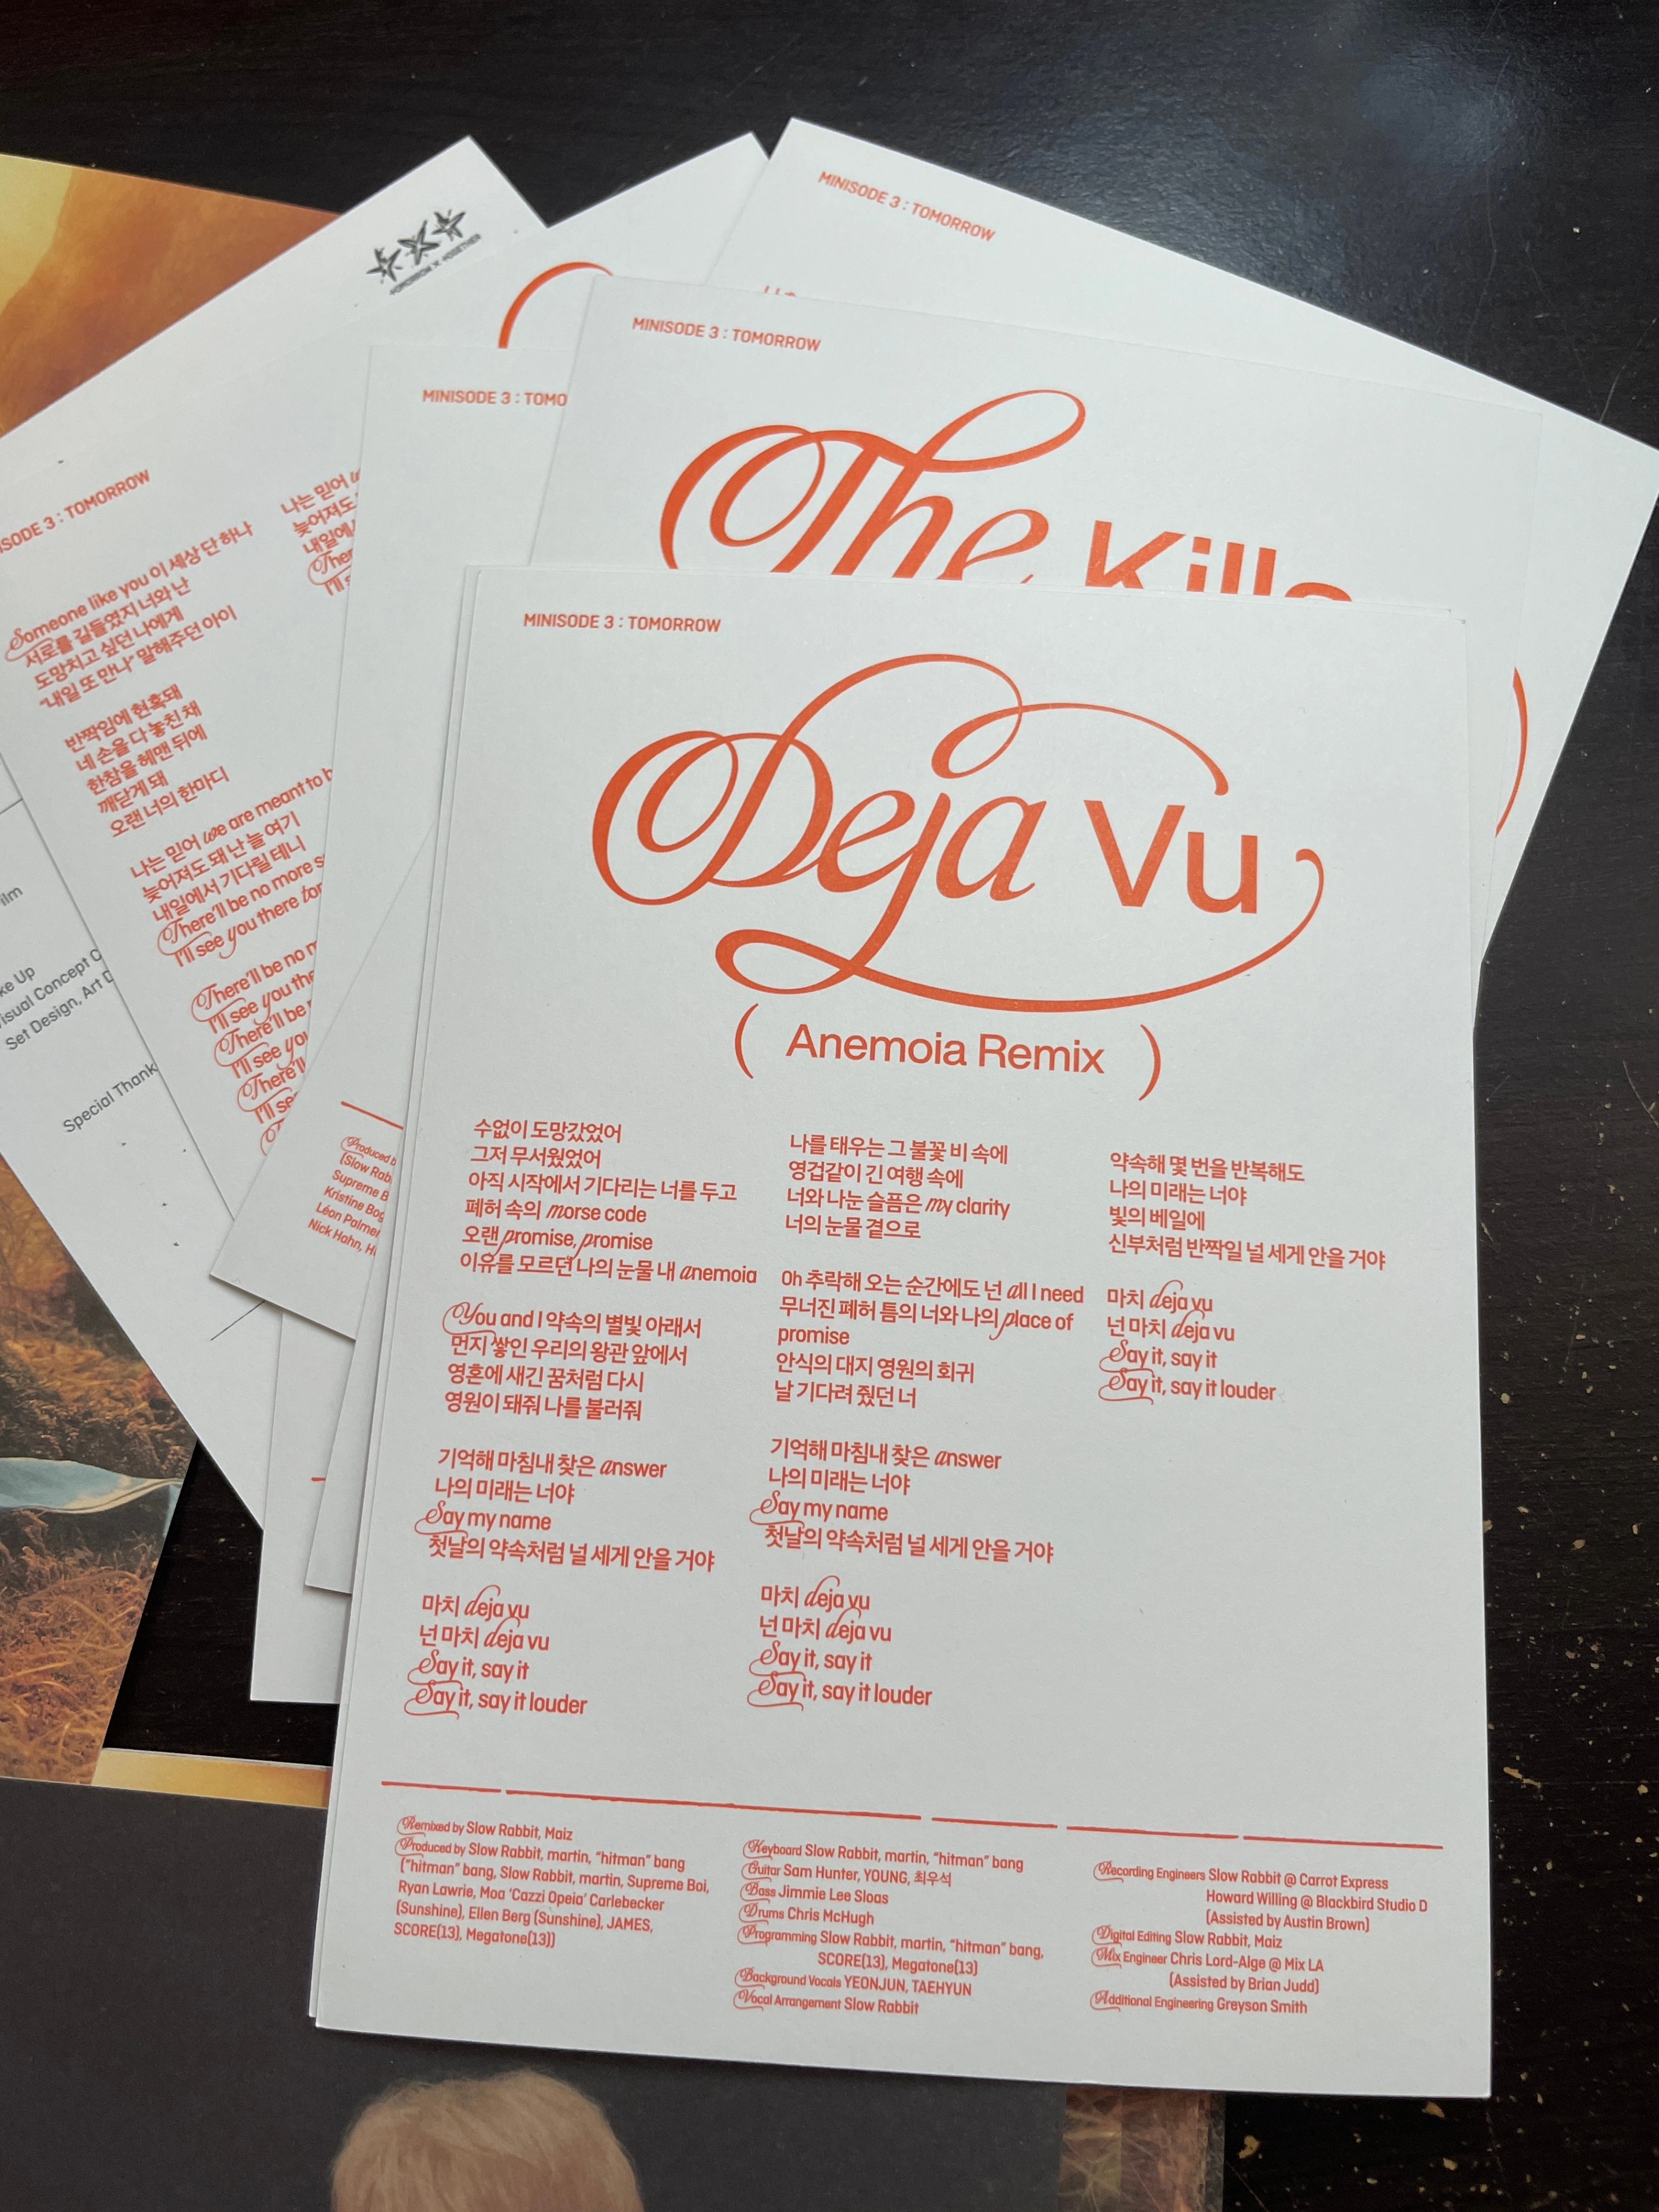 TOMORROW X TOGETHER
MINISODE 3 : TOMORROW
MINISODE 3 : TOMORROW
The Kills
MINISODE 3 : TOMO
SODE 3 : TOMORROW
Someone like you 이 세상 단 하나
서로를 길들였지 너와 난
도망치고 싶던 나에게
“내일 또 만나” 말해주던 아이
반짝임에 현혹돼
네 손을 다 놓친 채
한참을 헤맨 뒤에
깨닫게 돼
오랜 너의 한마디
나는 믿어 we are meant to b
늦어져도 돼 난 늘 여기
내일에서 기다릴 테니
There’ll be no more s
I’ll see you there tor
There’ll be no m
I’ll see you the
There’ll be
I’ll see you
There’ll
I’ll se
나는 믿어
늦어져도
내일에
Ther
I’ll s
ilm
ke Up
Visual Concept C
Set Design, Art D
Special Thank
Produced b
(Slow Rab
Supreme B
Kristine Bog
Léon Palmer
Nick Hahn, H
MINISODE 3 : TOMORROW
Deja Vu
( Anemoia Remix )
수없이 도망갔었어
그저 무서웠었어
아직 시작에서 기다리는 너를 두고
폐허 속의 morse code
오랜 promise, promise
이유를 모르던 나의 눈물 내 anemoia
You and I 약속의 별빛 아래서
먼지 쌓인 우리의 왕관 앞에서
영혼에 새긴 꿈처럼 다시
영원이 돼줘 나를 불러줘
기억해 마침내 찾은 answer
나의 미래는 너야
Say my name
첫날의 약속처럼 널 세게 안을 거야
마치 deja vu
넌 마치 deja vu
Say it, say it
Say it, say it louder
나를 태우는 그 불꽃 비 속에
영겁같이 긴 여행 속에
너와 나눈 슬픔은 my clarity
너의 눈물 곁으로
Oh 추락해 오는 순간에도 넌 all I need
무너진 폐허 틈의 너와 나의 place of
promise
안식의 대지 영원의 회귀
날 기다려 줬던 너
기억해 마침내 찾은 answer
나의 미래는 너야
Say my name
첫날의 약속처럼 널 세게 안을 거야
마치 deja vu
넌 마치 deja vu
Say it, say it
Say it, say it louder
약속해 몇 번을 반복해도
나의 미래는 너야
빛의 베일에
신부처럼 반짝일 널 세게 안을 거야
마치 deja vu
넌 마치 deja vu
Say it, say it
Say it, say it louder
Remixed by Slow Rabbit, Maiz
Produced by Slow Rabbit, martin, “hitman” bang
(“hitman” bang, Slow Rabbit, martin, Supreme Boi,
Ryan Lawrie, Moa ‘Cazzi Opeia’ Carlebecker
(Sunshine), Ellen Berg (Sunshine), JAMES,
SCORE(13), Megatone(13))
Keyboard Slow Rabbit, martin, “hitman” bang
Guitar Sam Hunter, YOUNG, 최우석
Bass Jimmie Lee Sloas
Drums Chris McHugh
Programming Slow Rabbit, martin, “hitman” bang,
SCORE(13), Megatone(13)
Background Vocals YEONJUN, TAEHYUN
Vocal Arrangement Slow Rabbit
Recording Engineers Slow Rabbit @ Carrot Express
Howard Willing @ Blackbird Studio D
(Assisted by Austin Brown)
Digital Editing Slow Rabbit, Maiz
Mix Engineer Chris Lord-Alge @ Mix LA
(Assisted by Brian Judd)
Additional Engineering Greyson Smith